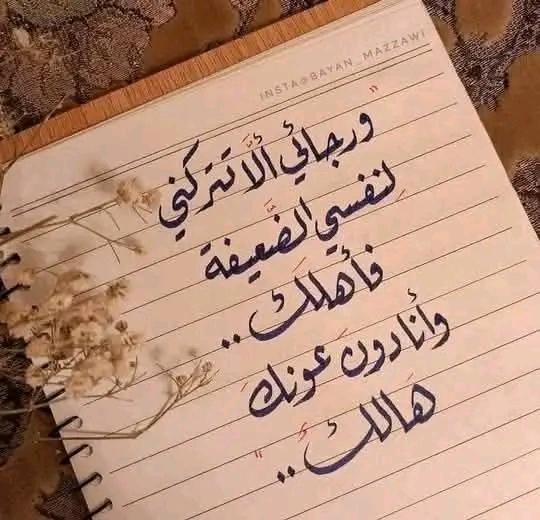 INSTA@BAYAN_MAZZAWI
"ورجائي ألَّا تتركني
لِنفسي الضَّعيفة
فأهلَك..
وأنا دونَ عونِكَ
هَالكُ.."